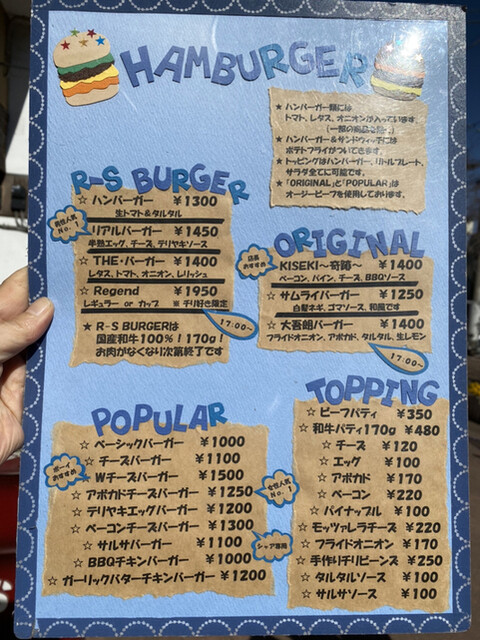 HAMBURGER
★ ハンバーガー類には
トマト、レタス、オニオンが入っています。
★ ハンバーガー&サンドウィッチには
ポテトフライがついてきます。
★ トッピングはハンバーガー、リトルプレート、
サラダ全てに可能です。
★ 「ORIGINAL」と「POPULAR」は
オージービーフを使用しております。
R-S BURGER
☆ ハンバーガー ¥1300
生トマト&タルタル
男性人気
No.1
☆ リアルバーガー ¥1450
半熟エッグ、チーズ、デリヤキソース
☆ THE・バーガー ¥1400
レタス、トマト、オニオン、レリッシュ
☆ Regend ¥1950
レギュラー or カップ ※ チリ好き限定
17:00~
★ R-S BURGERは
国産和牛100%!170g!
お肉がなくなり次第終了です
ORIGINAL
店長
おすすめ
☆ KISEKI~奇跡~ ¥1400
ベーコン、パイン、チーズ、BBQソース
☆ サムライバーガー ¥1250
白髪ネギ、ゴマソース、和風です
☆ 大吾朗バーガー ¥1400
フライドオニオン、アボカド、タルタル、生レモン
17:00~
POPULAR
☆ ベーシックバーガー ¥1000
☆ チーズバーガー ¥1100
ボーイ
おすすめ
☆ Wチーズバーガー ¥1500
☆ アボカドチーズバーガー ¥1250
女性人気
No.1
☆ デリヤキエッグバーガー ¥1200
☆ ベーコンチーズバーガー ¥1300
☆ サルサバーガー ¥1100
シェア専用
☆ BBQチキンバーガー ¥1000
☆ ガーリックバターチキンバーガー ¥1200
TOPPING
☆ ビーフパティ ¥350
☆ 和牛パティ170g ¥480
☆ チーズ ¥120
☆ エッグ ¥100
☆ アボカド ¥170
☆ ベーコン ¥220
☆ パイナップル ¥100
☆ モッツァレラチーズ ¥220
☆ フライドオニオン ¥170
☆ 手作りチリビーンズ ¥250
☆ タルタルソース ¥100
☆ サルサソース ¥100